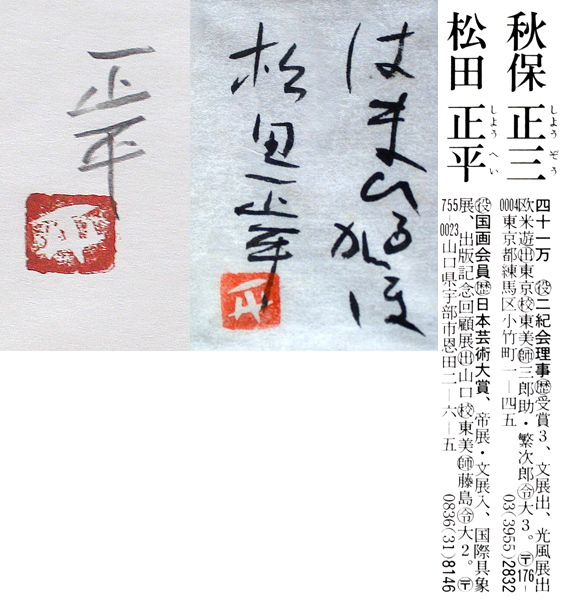 秋保 正三
しよう ぞう
四十一万 ㊝二紀会理事㊭受賞3、文展出、光風展出
欧米遊㊓東京㊛東美㊙三郎助・繁次郎㋿大3。〒176-
0004東京都練馬区小竹町一―四五 03(3955)2832
松田 正平
しよう へい
国画会員 日本芸術大賞、帝展・文展入、国際具象
展、出版記念回顧展 出 山口 校 東美 師 藤島 令 大2。〒
755-0023山口県宇部市恩田二―六―五 0836(31)8146
はまひるがほ
松田正平
正平